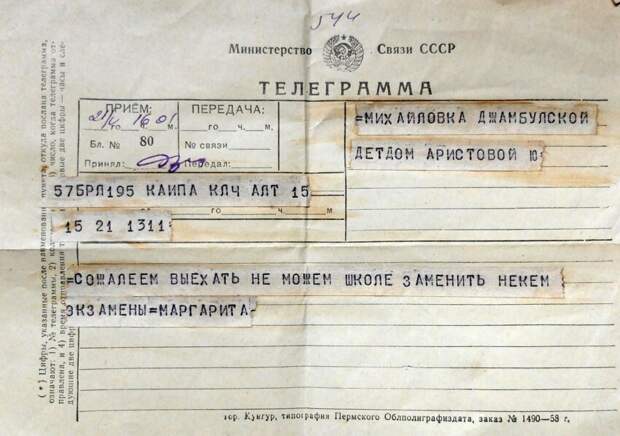 544
Министерство Связи СССР
ТЕЛЕГРАММА
ПРИЕМ:
21/4 16 01
го ч. м.
Бл. № 80
Принял:
ПЕРЕДАЧА:
го ч. м.
№ связи
Передал:
=МИХАЙЛОВКА ДЖАМБУЛСКОЙ
ДЕТДОМ АРИСТОВОЙ Ю
57БРЛ195 КАИПА КЛЧ АЛТ 15
15 21 1311=
=СОЖАЛЕЕМ ВЫЕХАТЬ НЕ МОЖЕМ ШКОЛЕ ЗАМЕНИТЬ НЕКЕМ
ЭКЗАМЕНЫ=МАРГАРИТА-
(*) Цифры, указанные после наименования пункта, откуда послана телеграмма,
означают: 1) № телеграммы, 2) число, когда телеграмма от-
правлена, и 4) время
дующие две цифры часы и сле-
гор. Кунгур, типография Пермского Облполиграфиздата, заказ № 1490—58 г.